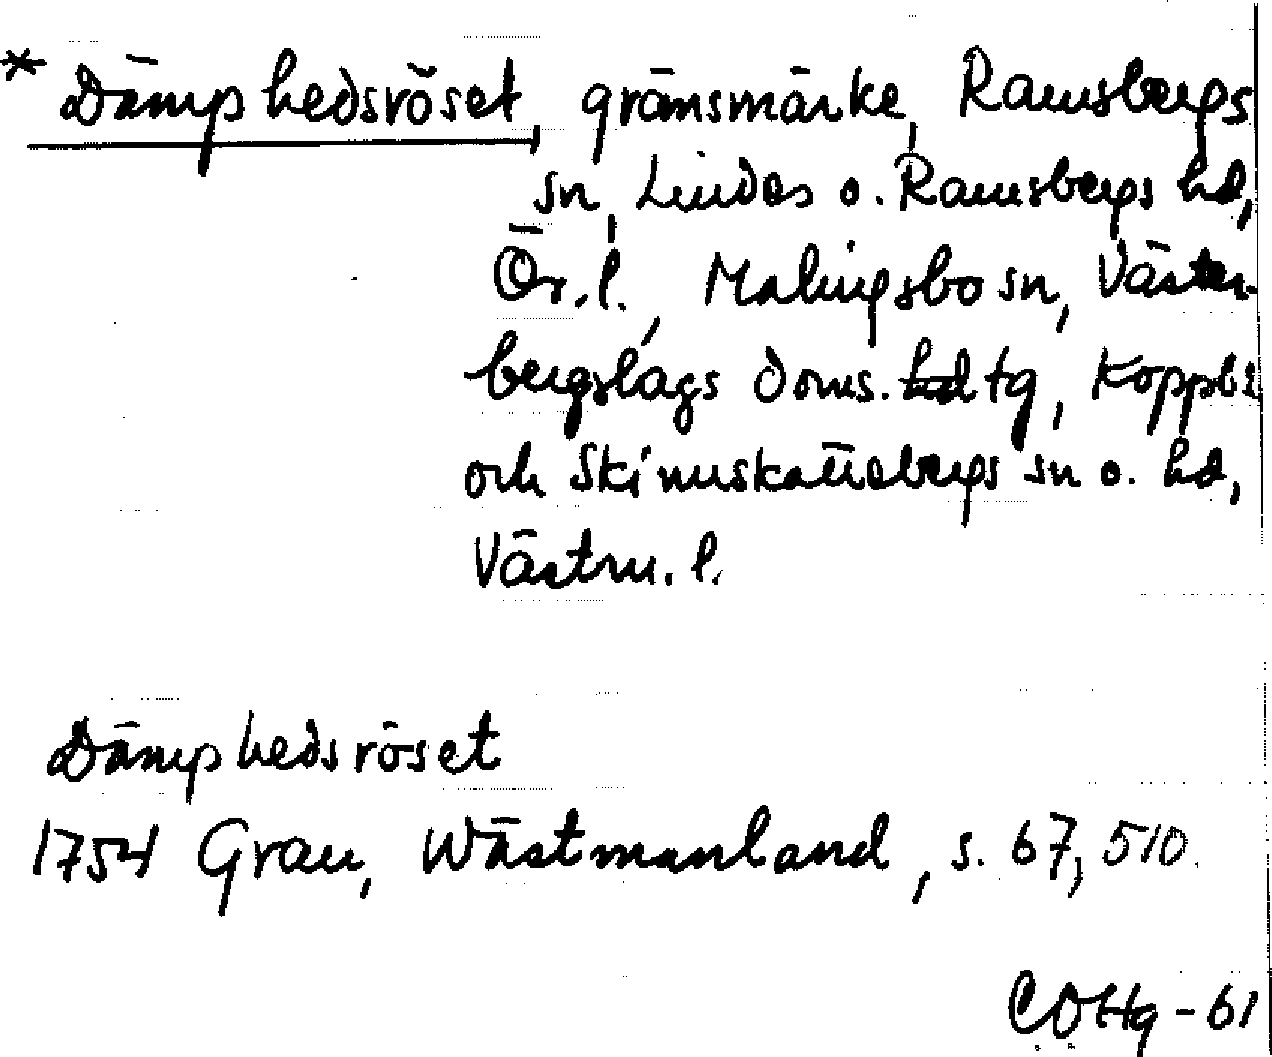 * Dämphedsröset, gränsmärke, Ramsbergs
sn, Lindes o. Ramsbergs hd,
Ör. l., Malingsbo sn, Väster-
bergslags doms. tg, Koppbs
och Skinnskattebergs sn o. hd,
Västm. l.
Dämphedsröset
1754 Grau, Wästmanland, s. 67, 510.
COHg - 61